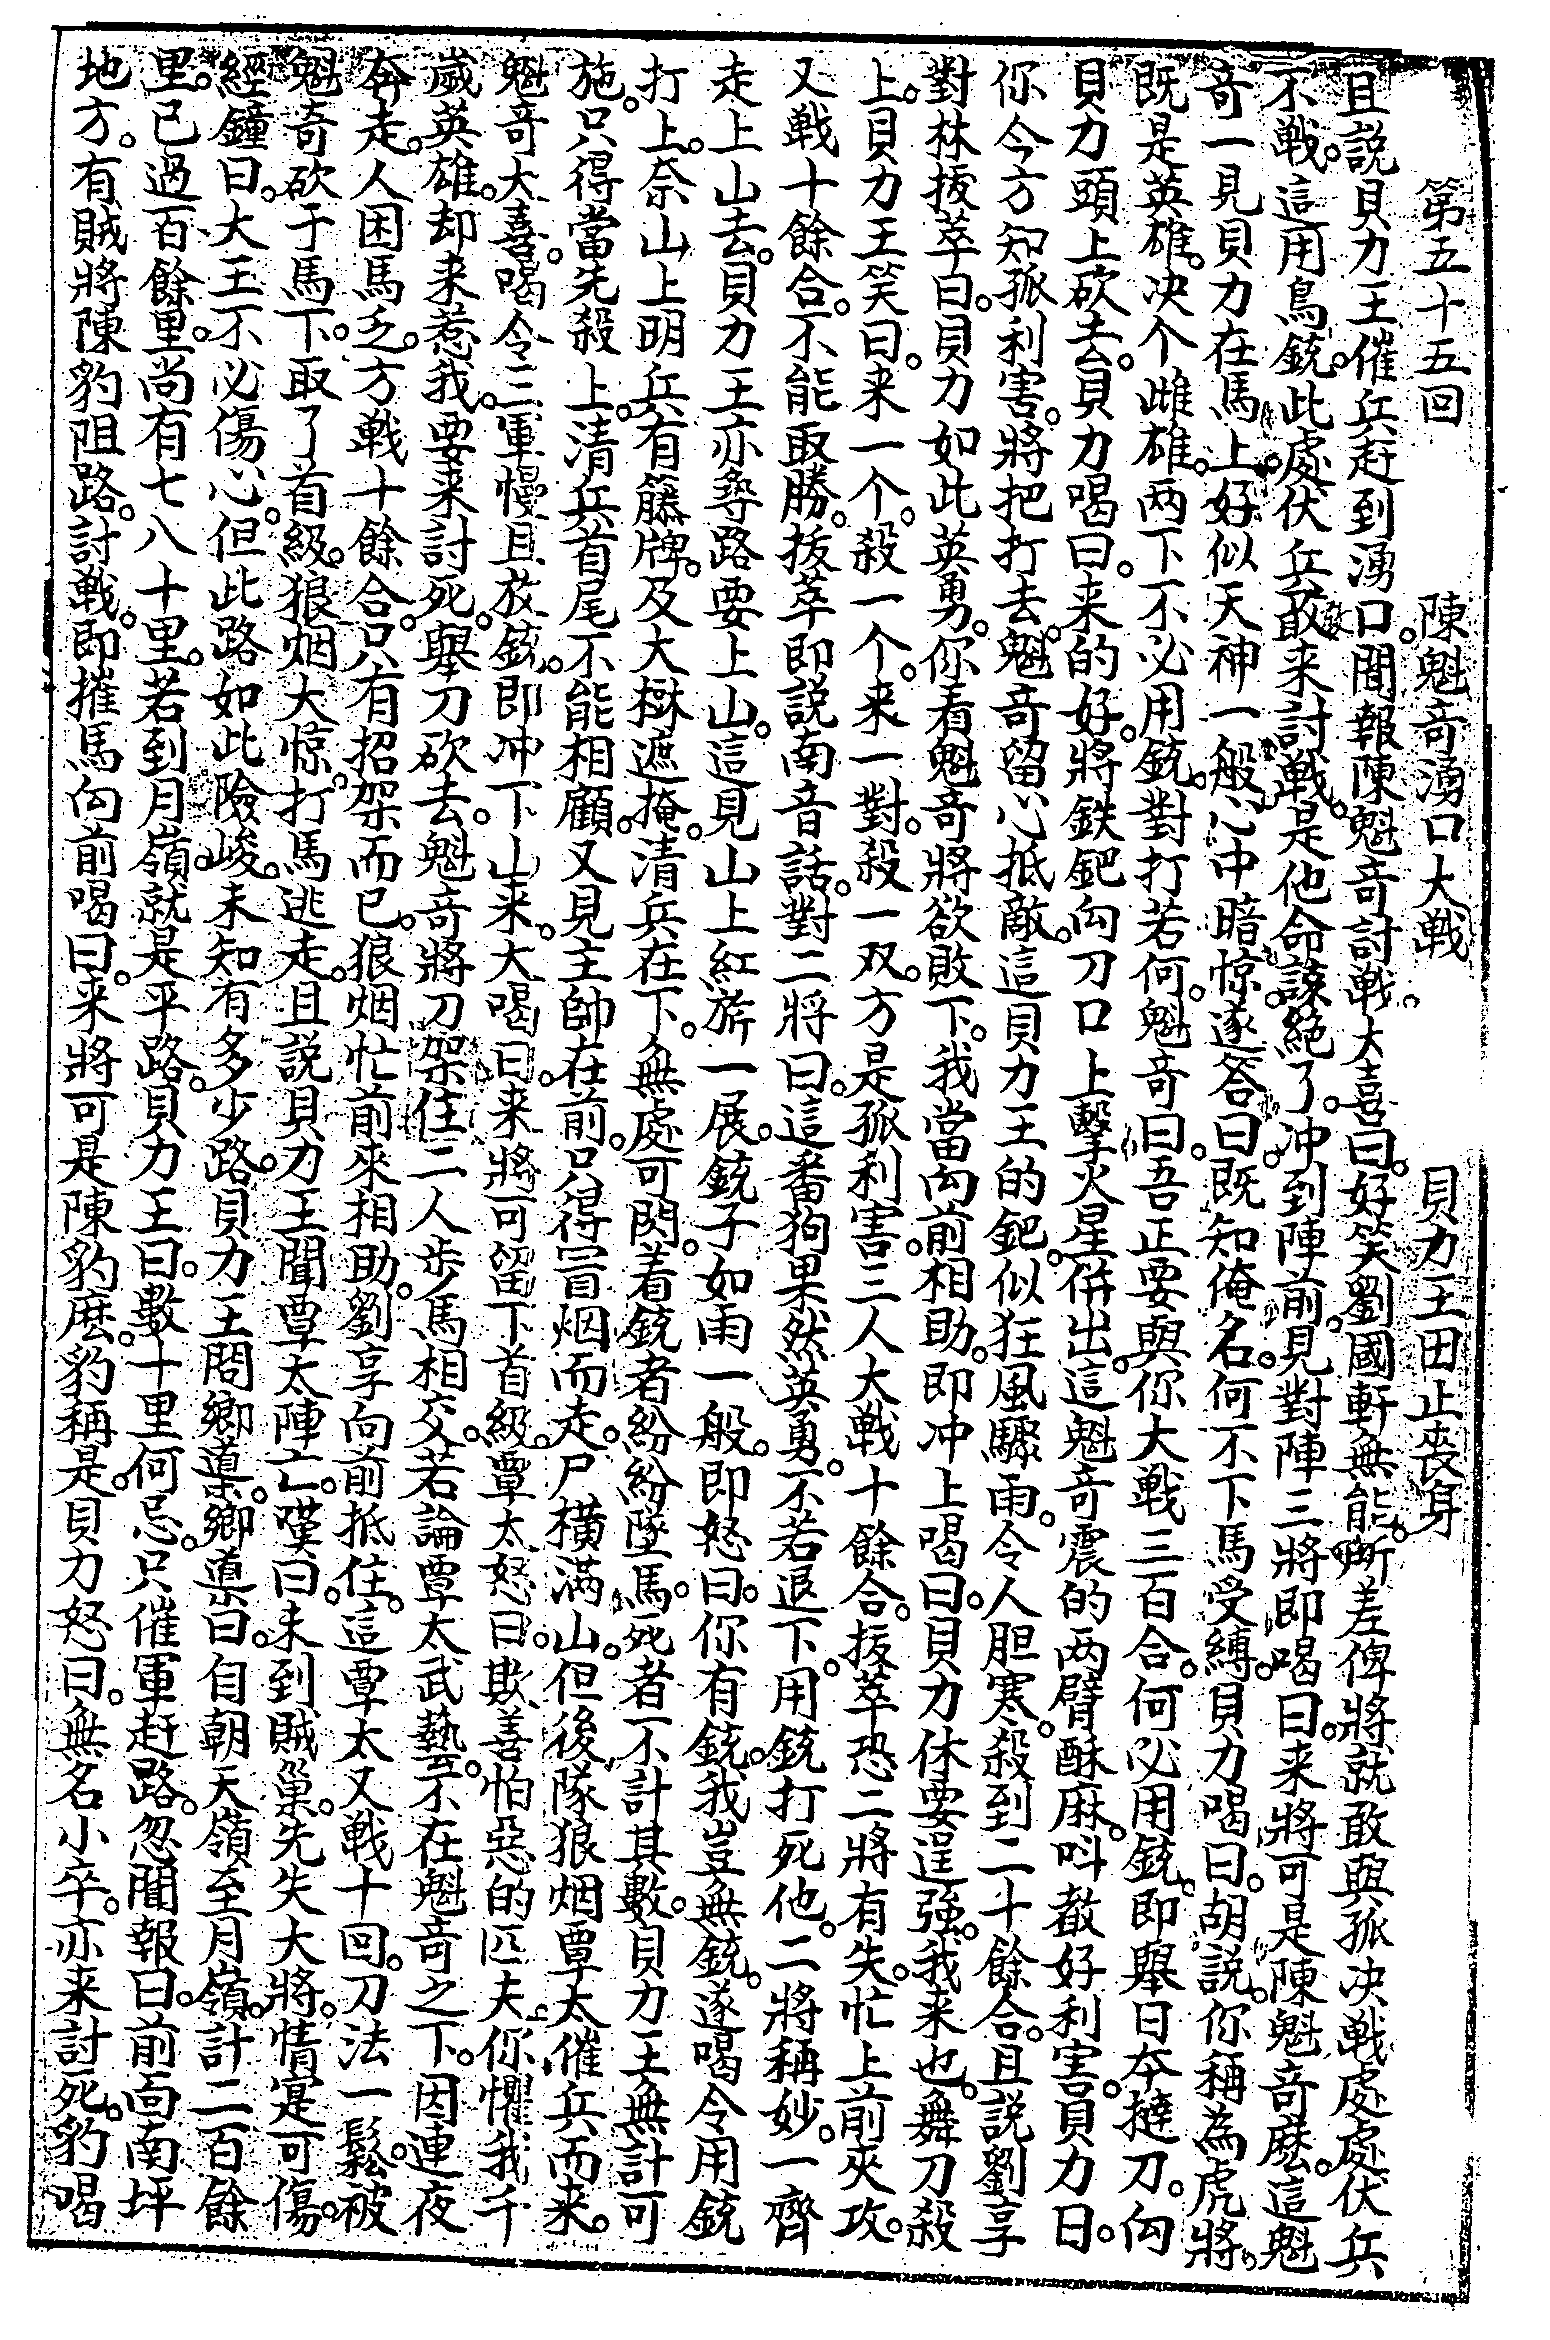 第五十五回　陳魁竒湧口大戦　貝力王田止丧身
且説貝力王催兵赶到湧口。聞報陳魁竒討戦。大喜曰。好笑劉國軒無能。所差俾將就敢與孤决戦處處伏兵
不戦。這用鳥銃。此處伏兵敢来討戦。是他命諫絕了。冲到陣前。見對陣三將即喝曰。来將可是陳魁竒麽。這魁
竒一見貝力在馬上好似天神一般。心中暗惊。遂答曰。既知俺名。何不下馬受縛。貝力喝曰。胡説。你稱為虎將。
既是英雄。决个雌雄。两下不必用銃。對打若何。魁竒曰。吾正要與你大戦三百合。何必用銃。即舉日夲撻刀。向
貝力頭上砍去。貝力喝曰。来的好。將鉄鈀向刀口上擊火星併出。這魁竒震的两臂酥麻。呌聲好利害。貝力曰。
你今方知孤利害。將把打去。魁竒留心抵敵。這貝力王的鈀。似狂風驟雨。令人胆寒。殺到二十餘合。且説劉享
對林拔萃曰。貝力如此英勇。你看魁竒將欲敗下。我當向前相助。即冲上喝曰。貝力休要逞強。我来也。舞刀殺
上。貝力王笑曰。来一个。殺一个。来一對。殺一双。方是孤利害。三人大戦十餘合。拔萃恐二將有失。忙上前夾攻。
又戦十餘合。不能取勝。拔萃即説南音話。對二將曰。這番狗果然英勇。不若退下。用銃打死他。二將稱妙。一齊
走上山去。貝力王亦尋路要上山。這見山上紅旂一展。銃子如雨一般。即怒曰。你有銃。我豈無銃。遂喝令用銃
打上。奈山上明兵。有籐牌。及大樹遮掩。清兵在下。無處可閃。着銃者紛紛墜馬。死者不計其數。貝力王無計可
施。只得當先殺上。清兵首尾不能相顧。又見主帥在前。只得冒烟而走。尸橫满山。但後隊狼烟覃太催兵而来。
魁竒大喜。喝令三軍慢且放銃。即冲下山来。大喝曰。来將可留下首級。覃太怒曰。欺善怕惡的匹夫。你懼我千
歲英雄。却来惹我。要来討死。舉刀砍去。魁竒將刀架住。二人步馬相交。若論覃太武藝。不在魁竒之下。因連夜
奔走。人困馬乏。方戦十餘合。只有招架而已。狼烟忙前來相助。劉享向前抵住。這覃太又戦十回。刀法一鬆。被
魁竒砍于馬下。取了首級。狼烟大惊。打馬逃走。且説貝力王聞覃太陣亡。嘆曰。未到賊巢。先失大將。情寔可傷。
經鐘曰。大王不必傷心。但此路如此險峻。未知有多少路。貝力王問鄉導。鄉導曰。自朝天嶺至月嶺。計二百餘
里。已過百餘里。尚有七八十里。若到月嶺。就是平路。貝力王曰。數十里何忌。只催軍赶路。忽聞報曰。前面南坪
地方。有賊將陳豹阻路。討戦。即摧馬向前喝曰。来將可是陳豹麽。豹稱是。貝力怒曰。無名小卒。亦来討死。豹喝